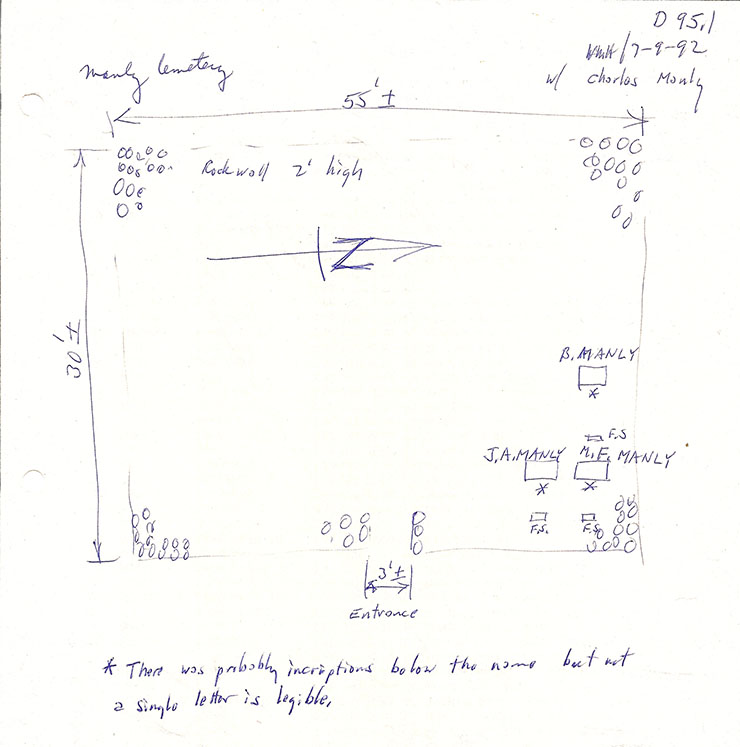 D 95.1
WMH/7-9-92
w/ Charles Manly
Manly Cemetery
55'±
Rockwall 2' high
N
30'±
B. MANLY
*
F.S
J.A. MANLY M.E. MANLY
* *
F.S. F.S.
3'±
Entrance
* There was probably incriptions below the name but not
a single letter is legible.